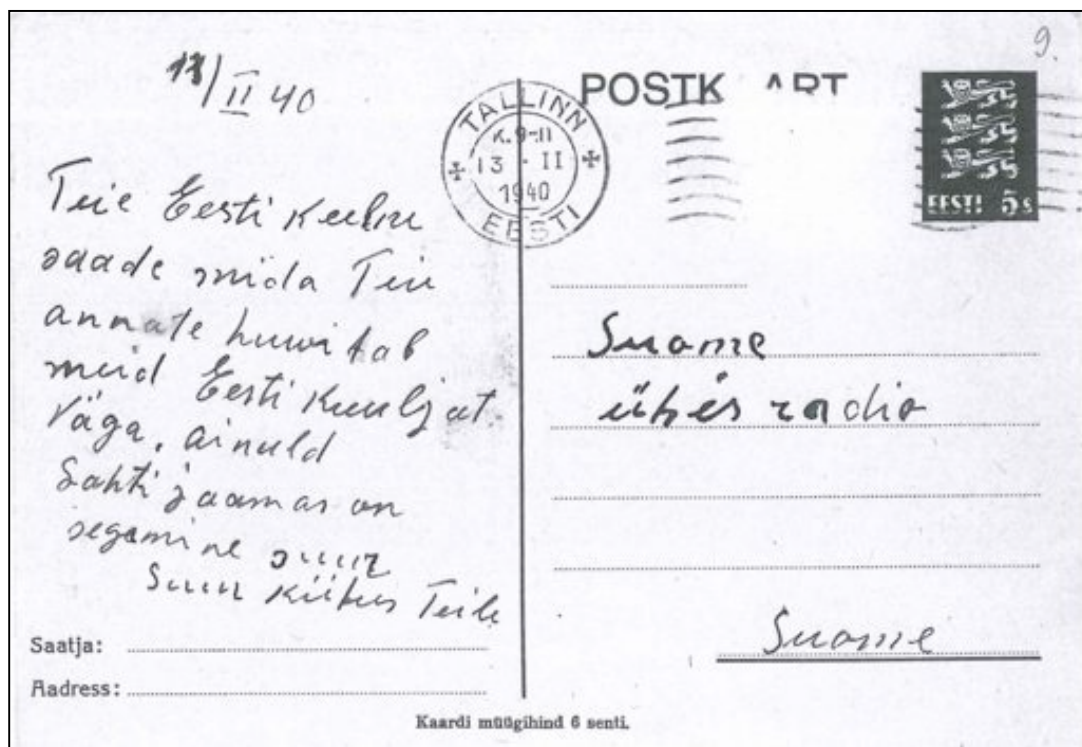 9.
11/II 40
POSTKART
TALLINN
K.9-11
13 · II
1940
EESTI
EESTI 5 s
Teie Eesti keelne
saade mida Teie
annate huwitab
meid Eesti kuuljat
väga, ainuld
Lahti jaamas on
segamine suur
Suur kiitus Teile
Suome
ühés radio
Suome
Saatja:
Aadress:
Kaardi müügihind 6 senti.